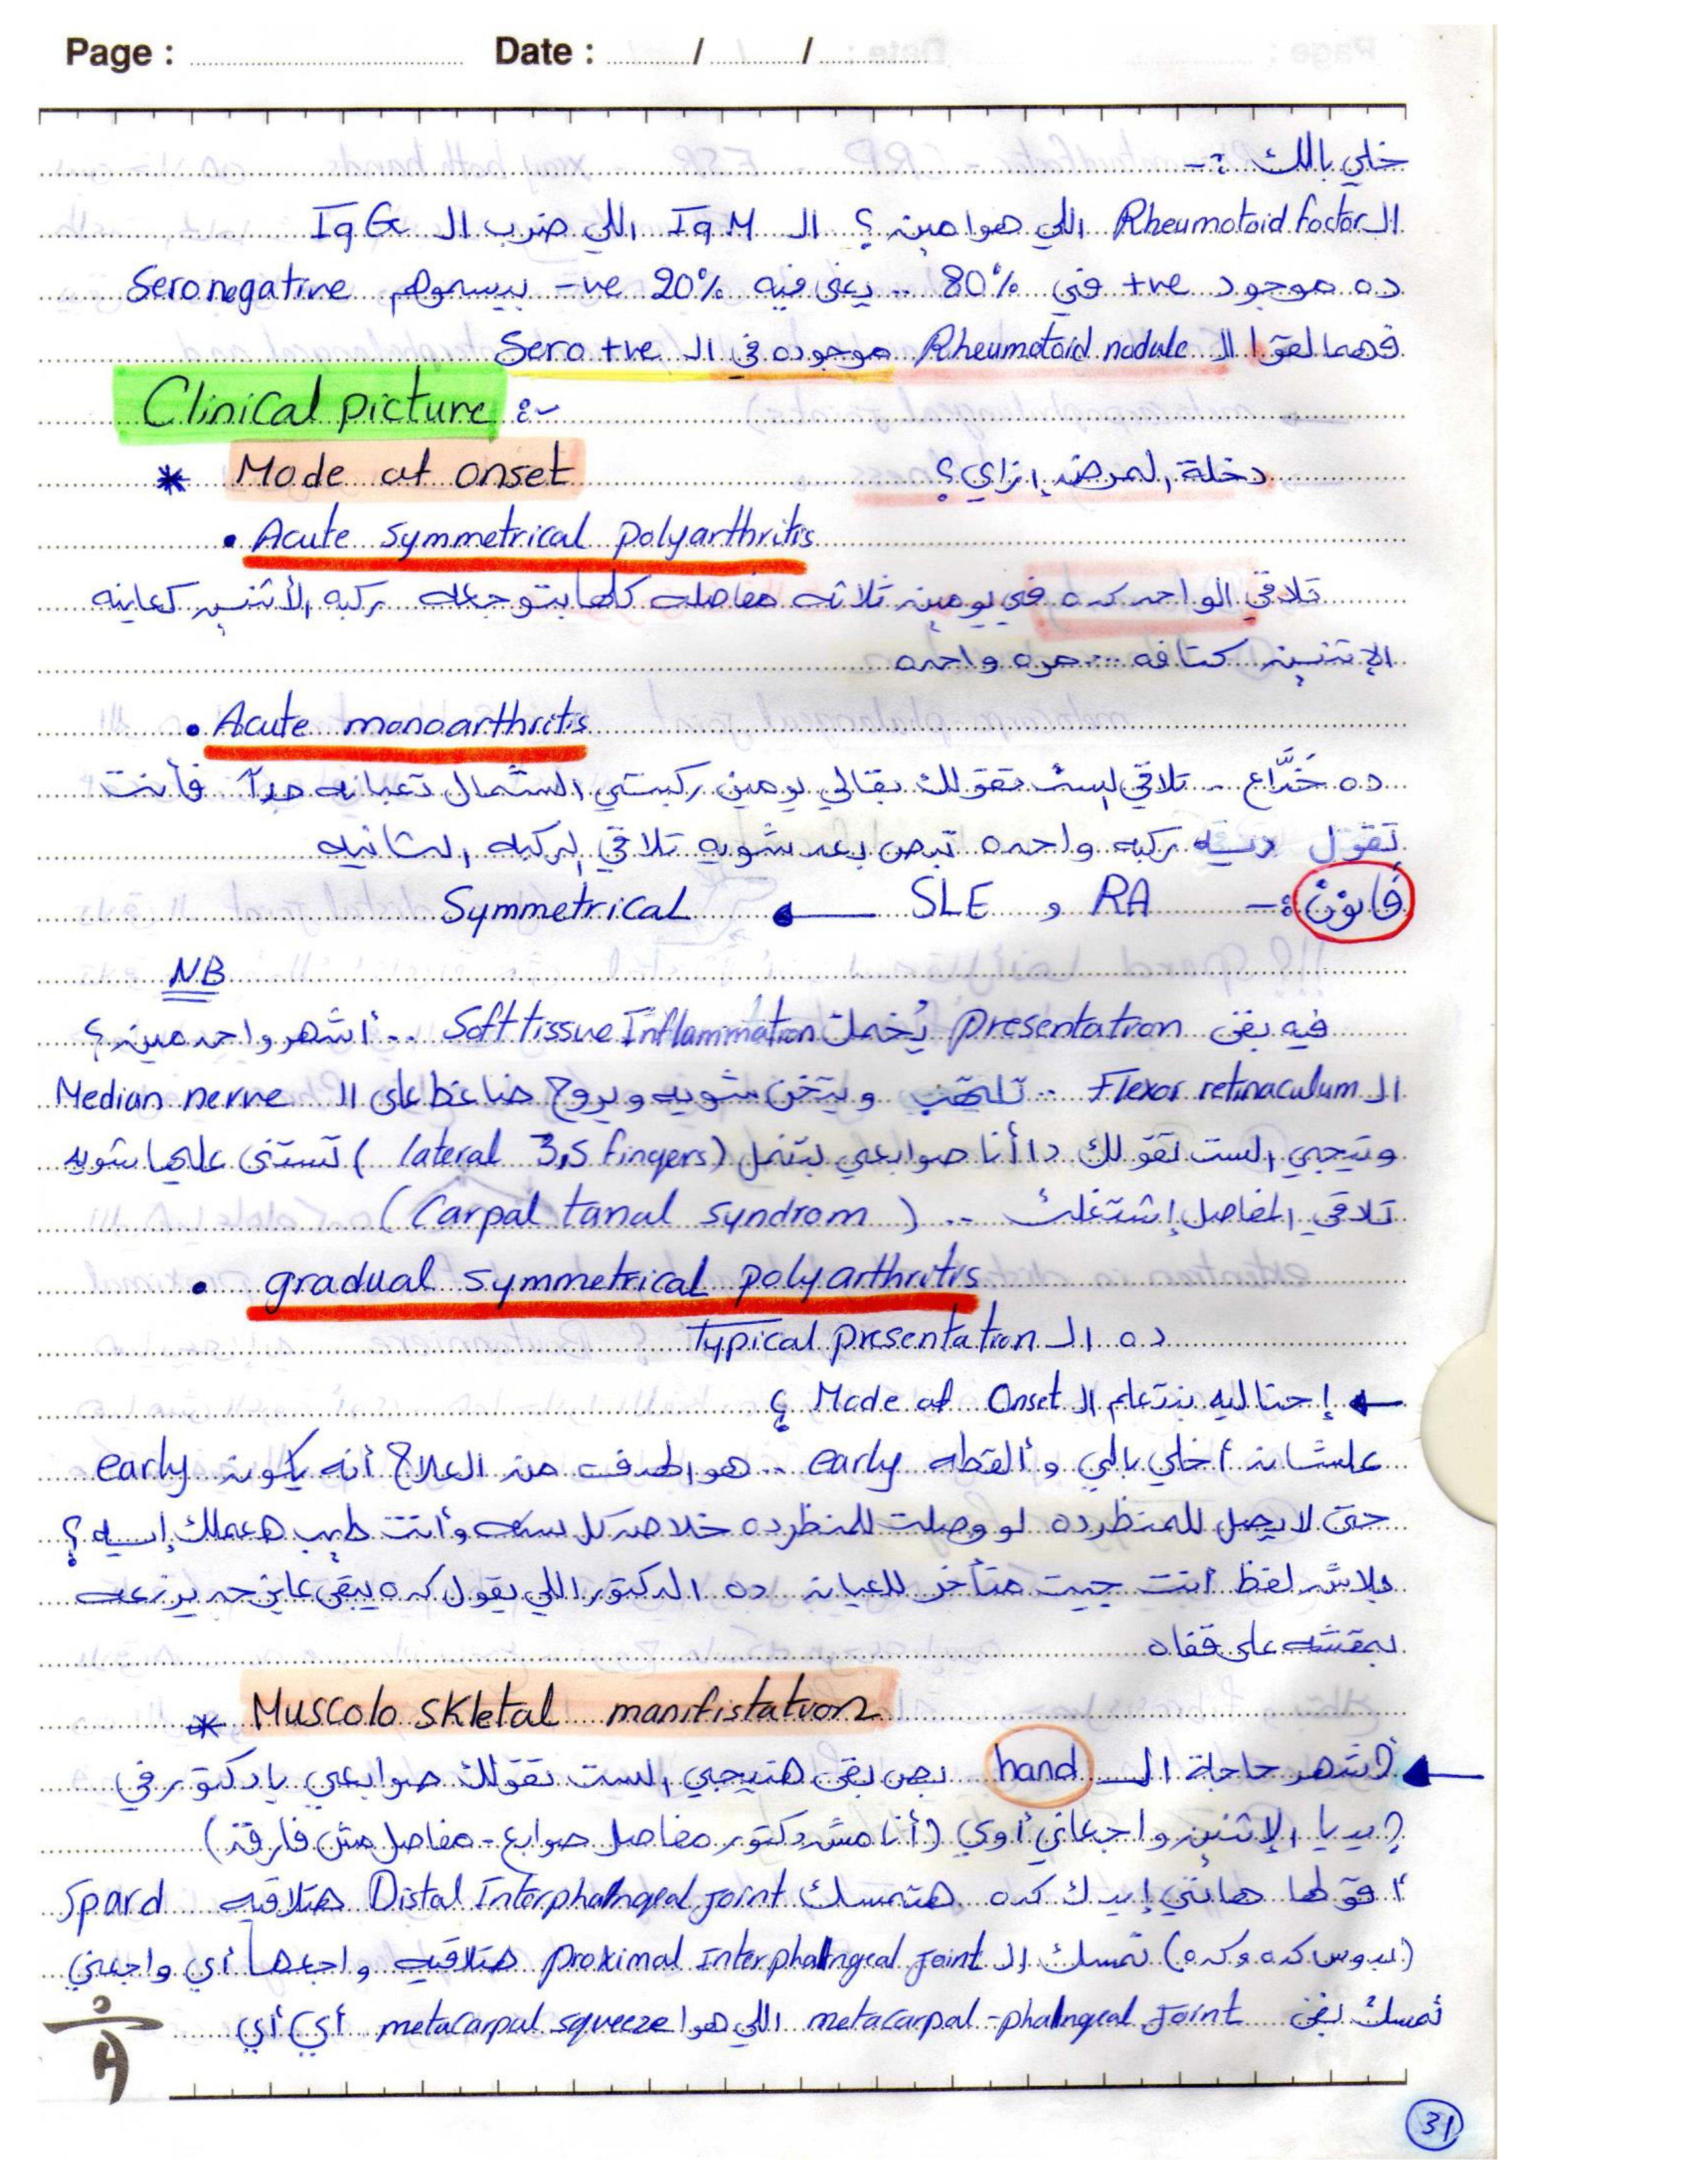 Page : Date : / /
خلي بالك :-
ال Rheumotoid factor اللي هوا مين ؟ ال IgM اللي ضرب ال IgG
ده موجود +ve في 80% .. يبقى فيه 20% -ve بيسموهم Seronegative
فهما لقوا ال Rheumatoid nodule موجوده في ال Sero +ve
Clinical picture :-
* Mode of onset دخلة المرض إزاي ؟
• Acute symmetrical polyarthritis
تلاقي الواحد كده في يومين ثلاثه مفاصله كلها بتوجعه ركبه الأتنين كعاينه
الإتنين كتافه ... مره واحده
• Acute monoarthritis
ده خَدَّاع .. تلاقي الست تقولك بقالي يومين ركبتي الشمال تعبانه جداً فأنت
تقول ديه ركبه واحده تبص بعد شويه تلاقي الركبه الثانيه
قانون :- RA و SLE ← Symmetrical
NB
فيه بقى presentation يُخملك Soft tissue Inflammation .. أشهر واحد مين ؟
ال Flexor retinaculum .. تلتهب ويتخن شويه ويروح ضاغط على ال Median nerve
وتيجي الست تقولك دا أنا صوابعي بتنمل (lateral 3,5 fingers) تستنى عليها شويه
تلاقي المفاصل إشتغلت .. (Carpal tanal syndrom)
• gradual symmetrical polyarthritis
ده ال Typical presentation
← إحنا ليه بنتعلم ال Mode of Onset ؟
علشان أخلي بالي وألقطه early .. هو الهدف من العلاج أنه يكون early
حتى لا يصل للمنظر ده لو وصلت للمنظر ده خلاص كل سنه وأنت طيب هعملك إيه ؟
بلاش لفظ أنت جيت متأخر للعيان ده الدكتور اللي يقول كده يبقى عايز حد يزعه
بمقشه على قفاه
* Muscolo skletal manifistation
← أشهر حاجة ال hand بص بقى هتيجي الست تقولك صوابعي يا دكتور في
إيديا الإتنين واجعاني أوي (أنا مش دكتور مفاصل صوابع - مفاصل مش فارقة)
أقولها هاتي إيدك كده هتمسك Distal Interphalngeal joint هتلاقيه Spard
(بيوس كده وكده) تمسك ال proximal Interphalngeal joint هتلاقيه واجعها أي واجعني
تمسك بقى metacarpal-phalngeal joint اللي هوا metacarpal squeeze أي أي
31